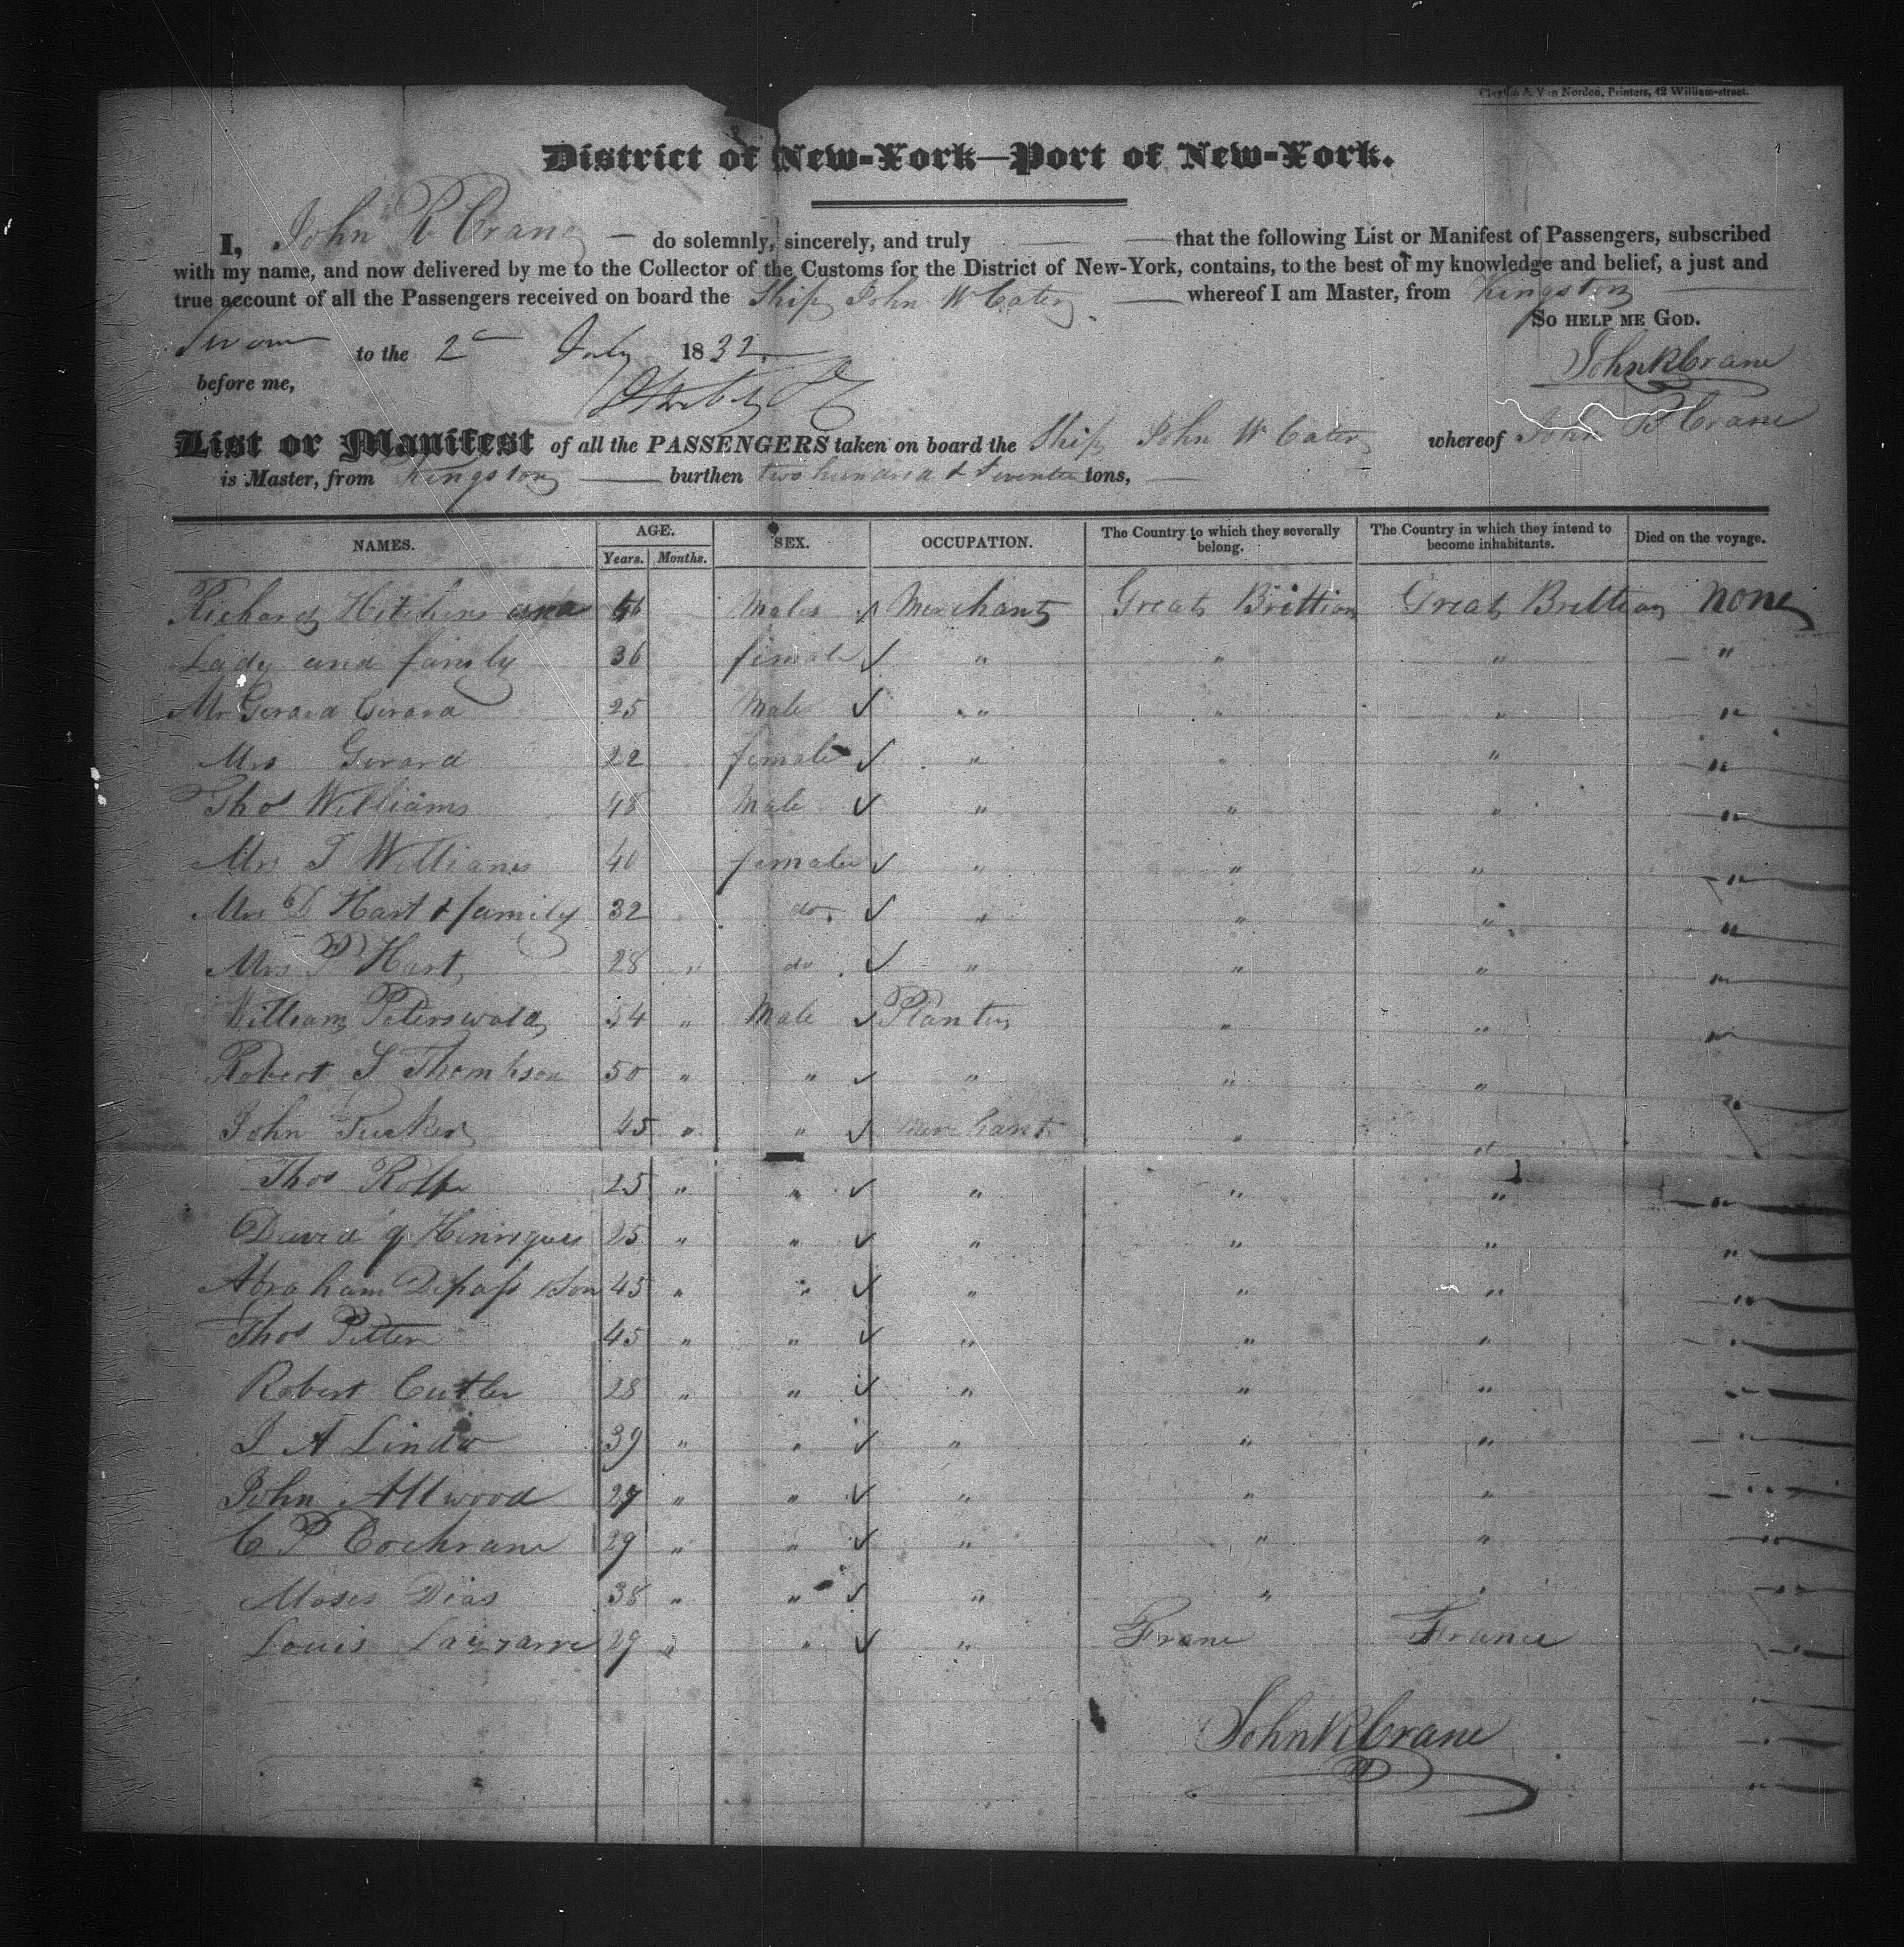 Clayton & Van Norden, Printers, 42 William-street.
District of New-York—Port of New-York.
I, John R Crane — do solemnly, sincerely, and truly — — that the following List or Manifest of Passengers, subscribed
with my name, and now delivered by me to the Collector of the Customs for the District of New-York, contains, to the best of my knowledge and belief, a just and
true account of all the Passengers received on board the Ship John W Cater — whereof I am Master, from Kingston —
SO HELP ME GOD.
Sworn to the 2d July 1832.
John R Crane
before me,
List or Manifest of all the PASSENGERS taken on board the Ship John W Cater whereof John R Crane
is Master, from Kingston — burthen two hundred & seventeen tons, —
NAMES. AGE. SEX. OCCUPATION. The Country to which they severally belong. The Country in which they intend to become inhabitants. Died on the voyage.
Years. Months.
Richard Hitchins and Males ✓ Merchant Great Brittian Great Brittian None
Lady and family 36 female ✓ " " " "
Mr Gerard Gerard 25 Male ✓ " " " "
Mrs Gerard 22 female ✓ " " " "
Thos Williams 48 Male ✓ " " " "
Mrs T Williams 40 female ✓ " " " "
Mrs D Hart & family 32 do. ✓ " " " "
Mrs P Hart 28 " do. ✓ " " " "
William Peterswald 54 " Male ✓ Planter " " "
Robert S Thompson 50 " " ✓ " " " "
John Tucker 45 " " ✓ Merchant " " "
Thos Rolfe 25 " " ✓ " " " "
David q Henriques 25 " " ✓ " " " "
Abraham Depass & Son 45 " " ✓ " " " "
Thos Pitter 45 " " ✓ " " " "
Robert Cutler 28 " " ✓ " " " "
J A Lindo 39 " " ✓ " " " "
John Attwood 27 " " ✓ " " " "
C P Cochrane 29 " " ✓ " " " "
Moses Dias 38 " " ✓ " " " "
Louis Lazzarre 29 " " ✓ " Franc France "
"
John R Crane
"
"